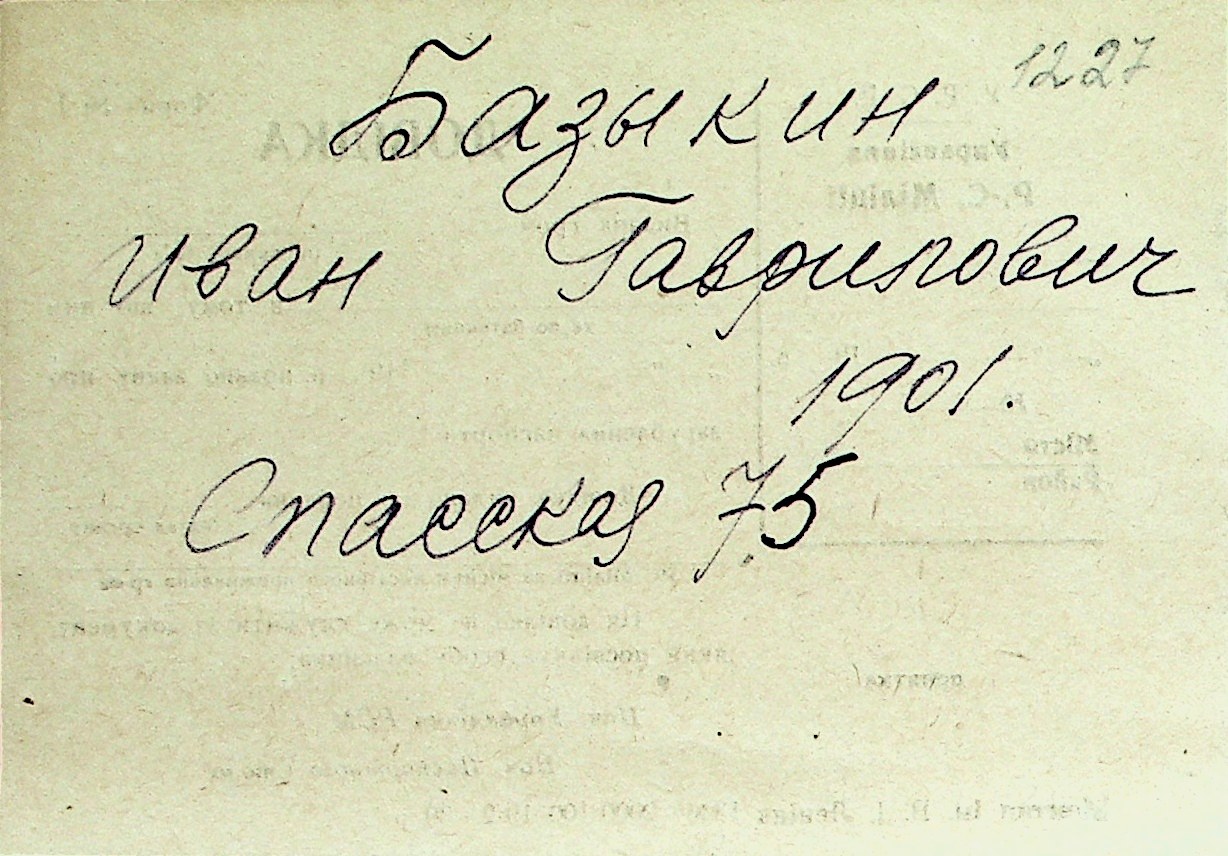 1227
Базыкин
Иван Гаврилович
1901.
Спасская 75